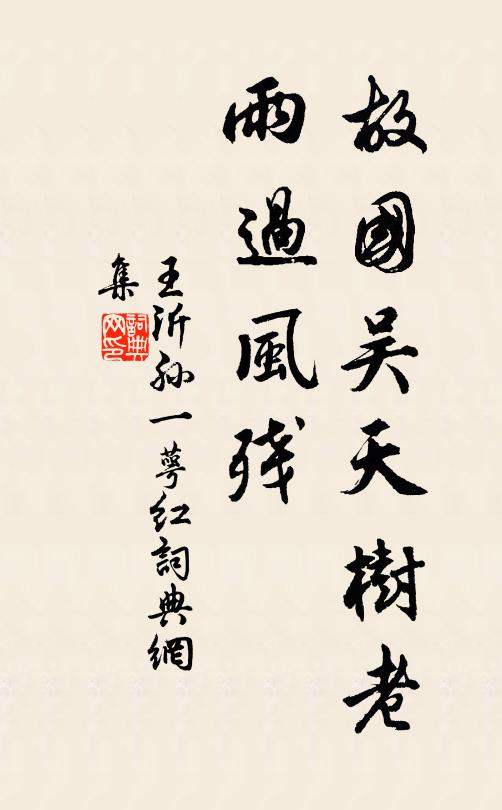 故國吴天樹老
雨過風殘
王沂孫一萼紅詞典網
集
詞典
网印